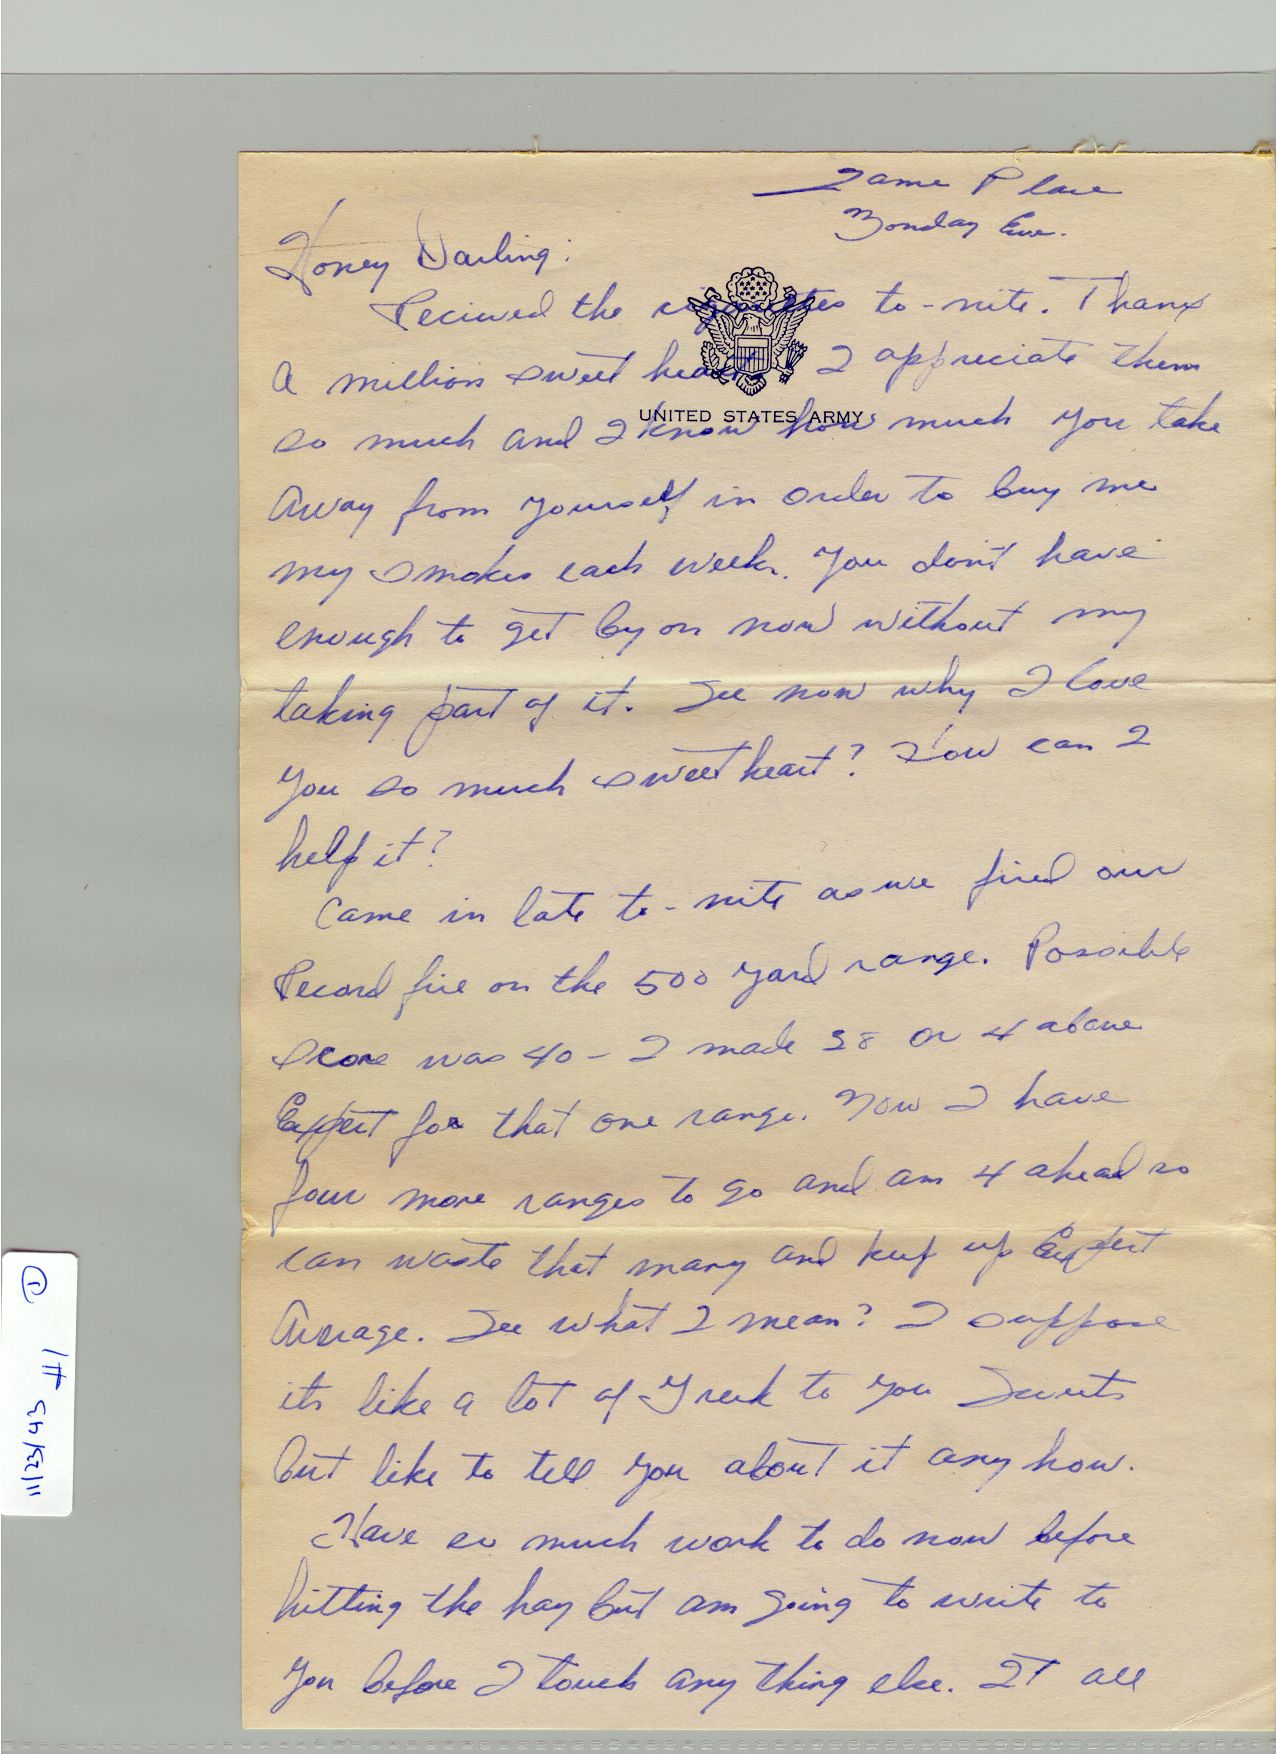 Same Place
Monday Eve.
Honey Darling:
Recieved the cigarettes to-nite. Thanx
a million sweet heart. I appreciate them
UNITED STATES ARMY
so much and I know how much you take
away from yourself in order to buy me
my smokes each week. You don't have
enough to get by on now without my
taking part of it. See now why I love
you so much sweetheart? How can I
help it?
Came in late to-nite as we fired our
Record fire on the 500 yard range. Possible
score was 40 - I made 38 or 4 above
Expert for that one range. Now I have
four more ranges to go and am 4 ahead so
can waste that many and keep up Expert
Average. See what I mean? I suppose
its like a lot of Greek to you Sweets
but like to tell you about it any how.
Have so much work to do now before
hitting the hay but am going to write to
you before I touch any thing else. It all
11/23/43 #1 ①